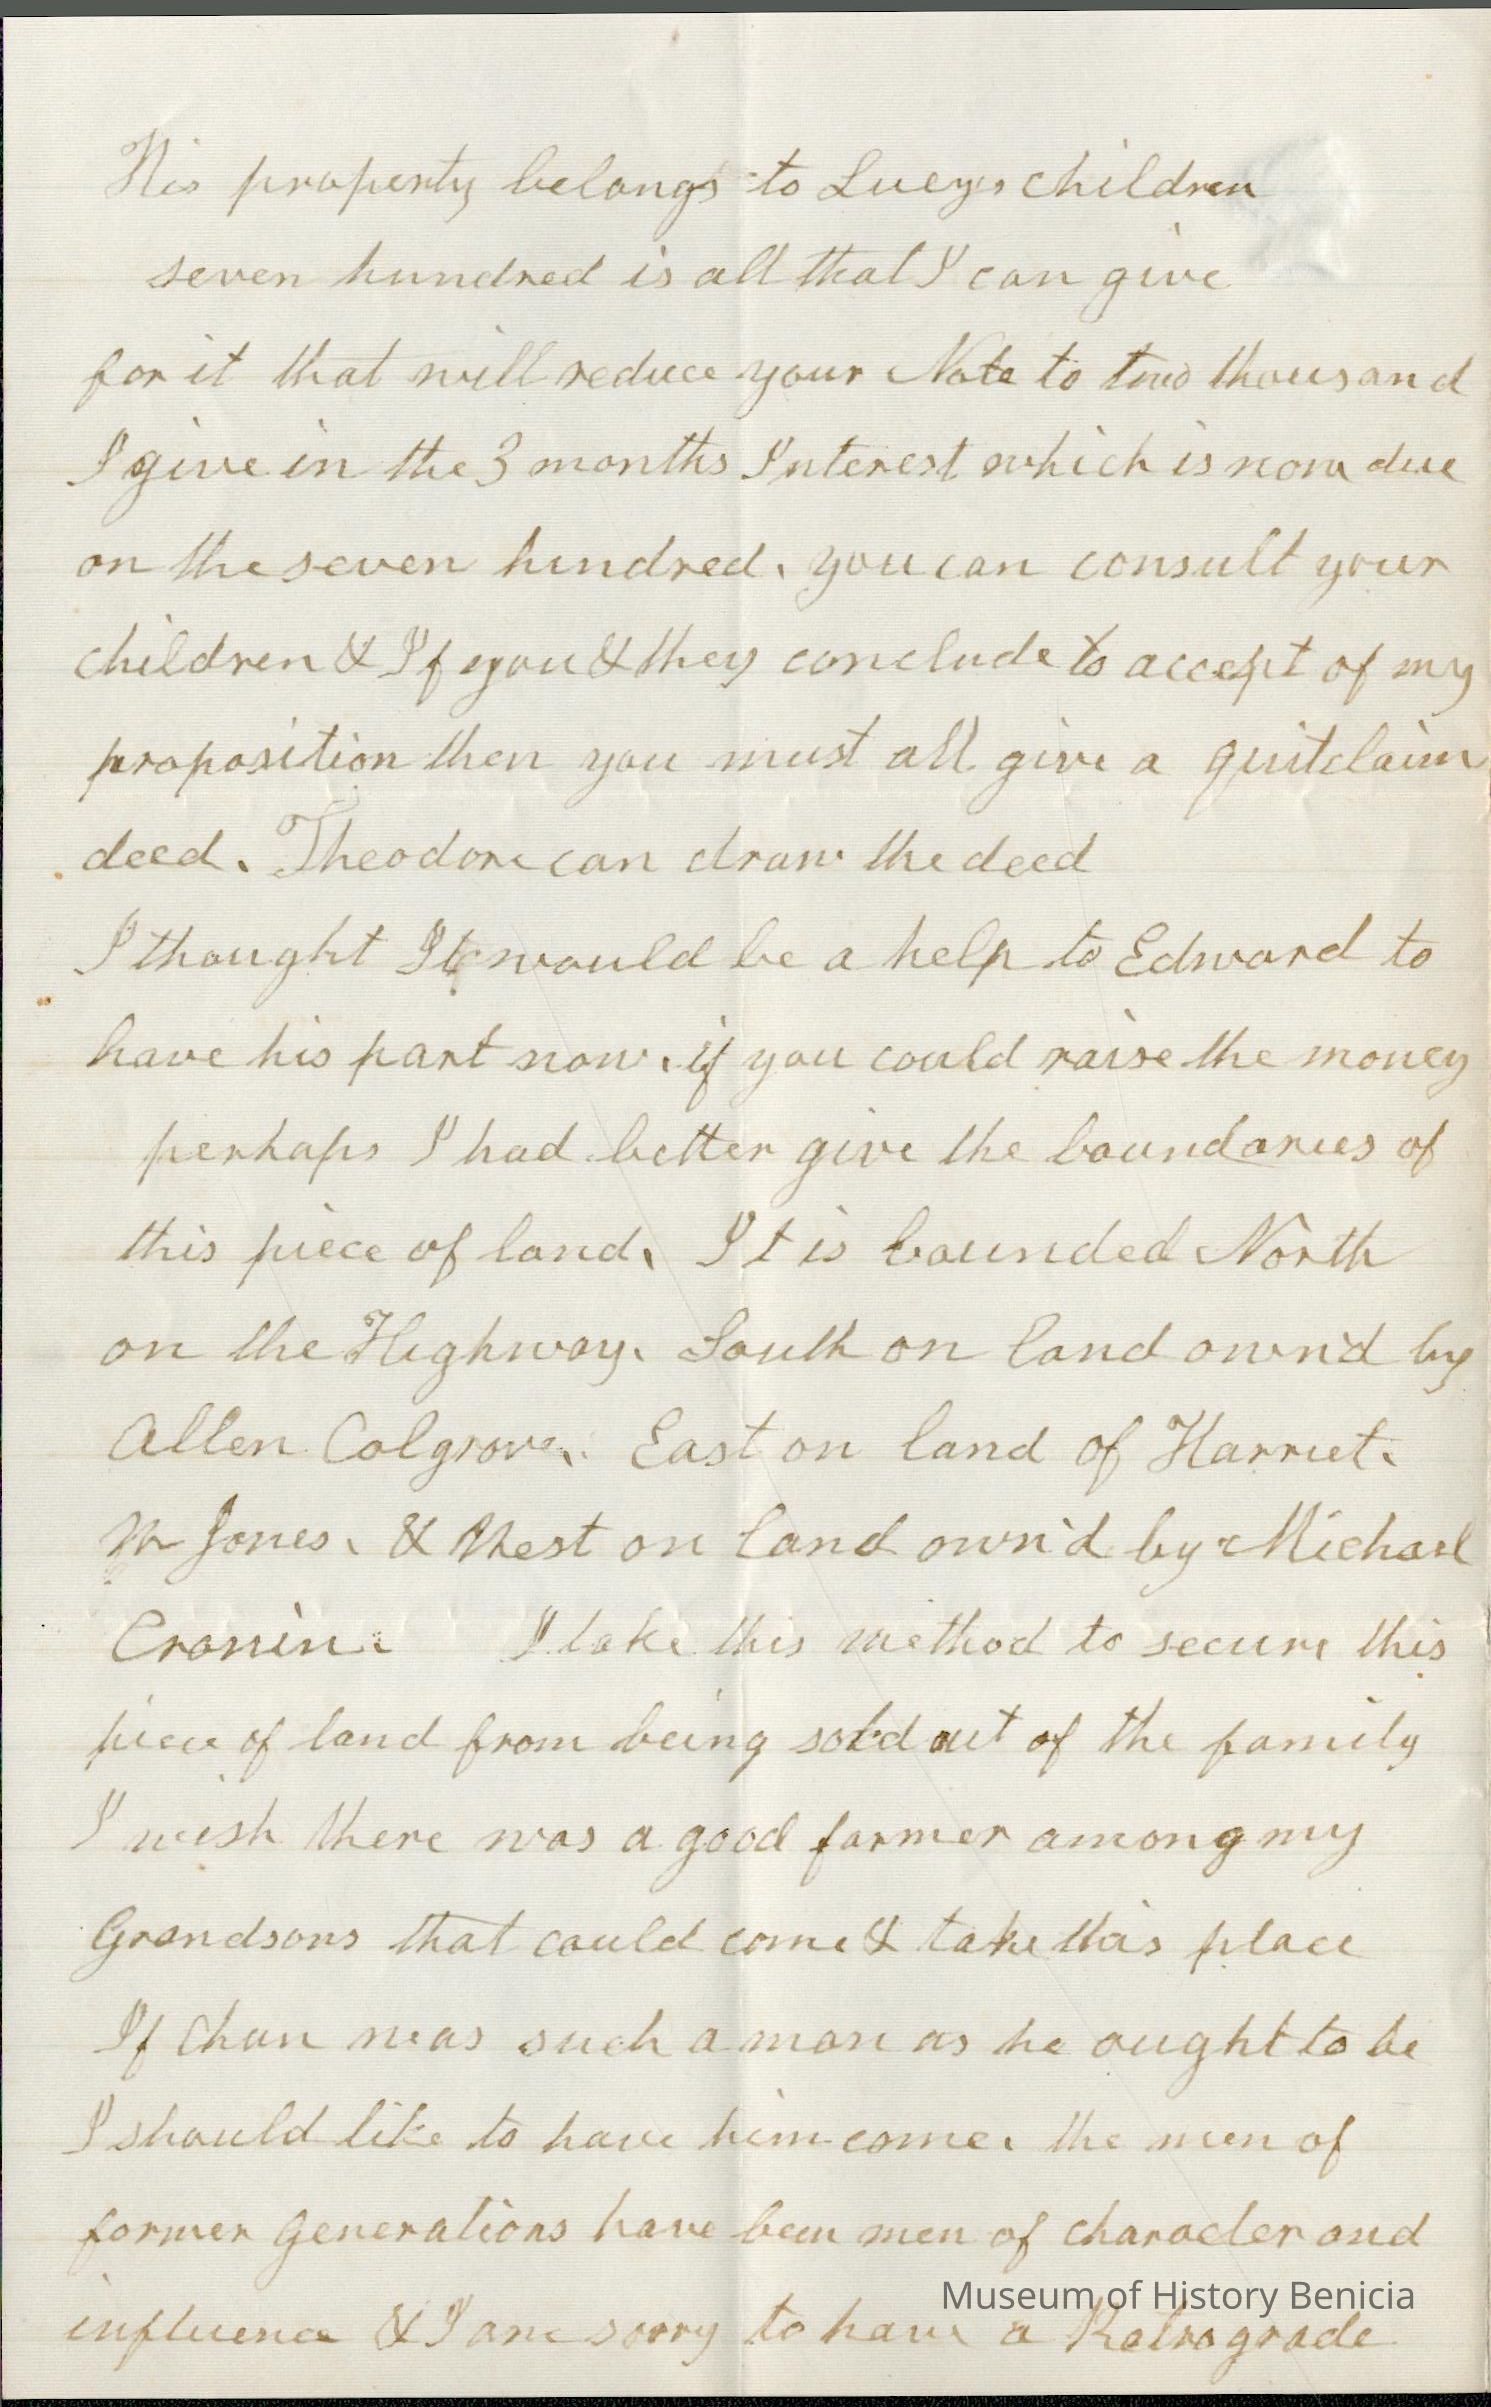 His property belongs to Lucy's children
seven hundred is all that I can give
for it that will reduce your Note to two thousand
I give in the 3 months Interest which is now due
on the seven hundred. you can consult your
children & If you & they conclude to accept of my
proposition then you must all give a quitclaim
deed. Theodore can draw the deed
I thought It would be a help to Edward to
have his part now. if you could raise the money
perhaps I had better give the boundaries of
this piece of land. It is bounded North
on the Highway. South on land own'd by
Allen Colgrove. East on land of Harriet.
W Jones. & West on land own'd by Michael
Cronin. I take this method to secure this
piece of land from being sold out of the family
I wish there was a good farmer among my
Grandsons that could come & take this place
If Chan was such a man as he ought to be
I should like to have him come. the men of
former Generations have been men of character and
influence & I am sorry to have a Retrograde
Museum of History Benicia